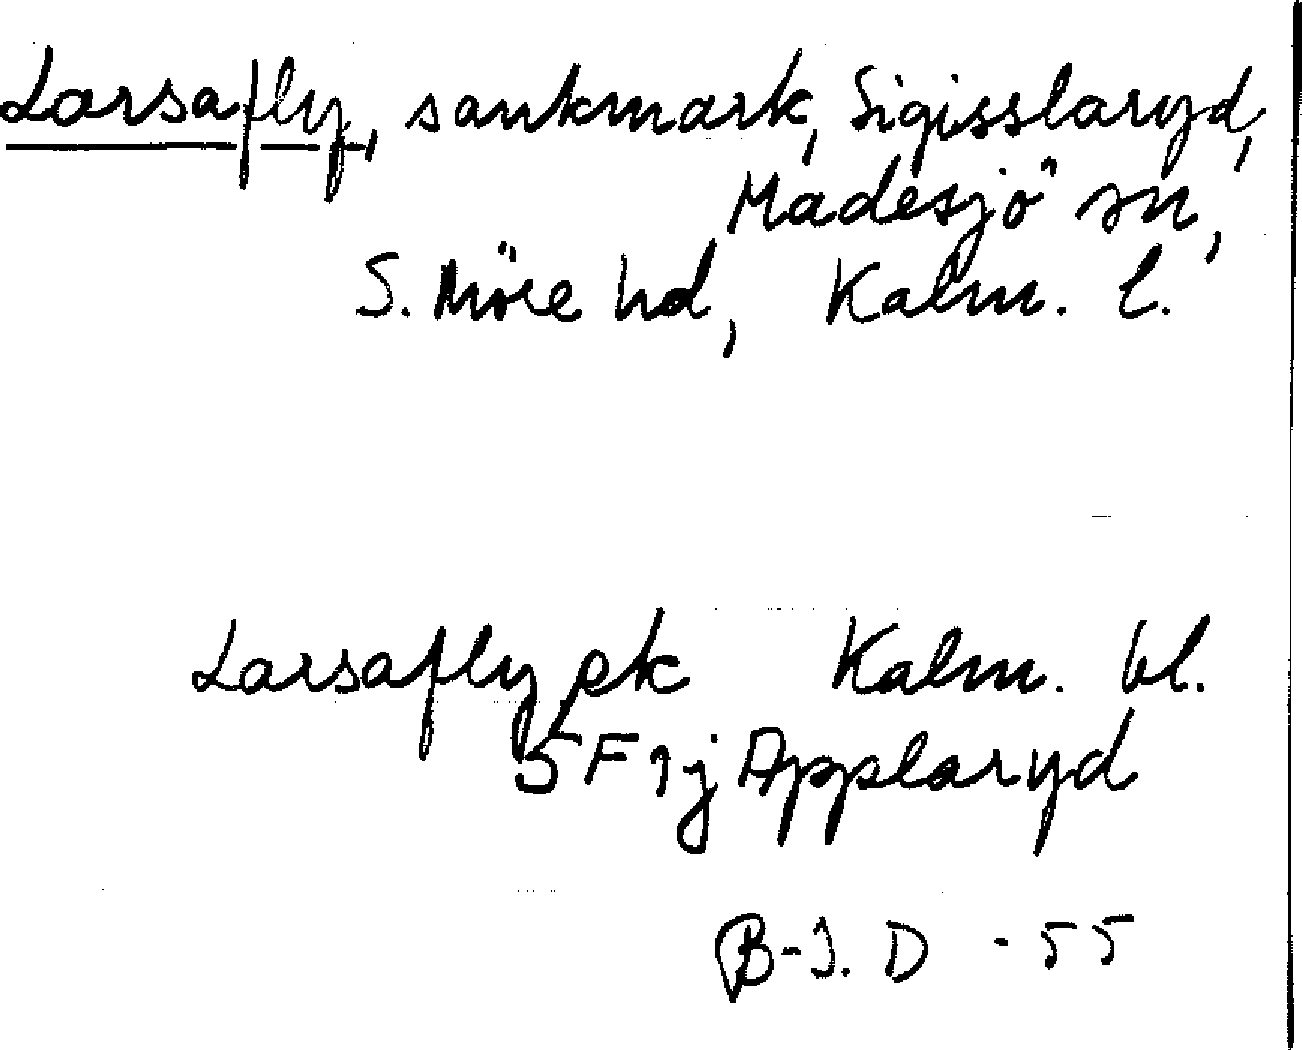 Larsafly, sankmark, Sigisslaryd,
Madesjö sn,
S. Möre hd, Kalm. l.
Larsafly ek Kalm. bl.
5F 1j Applaryd
B-J. D -55